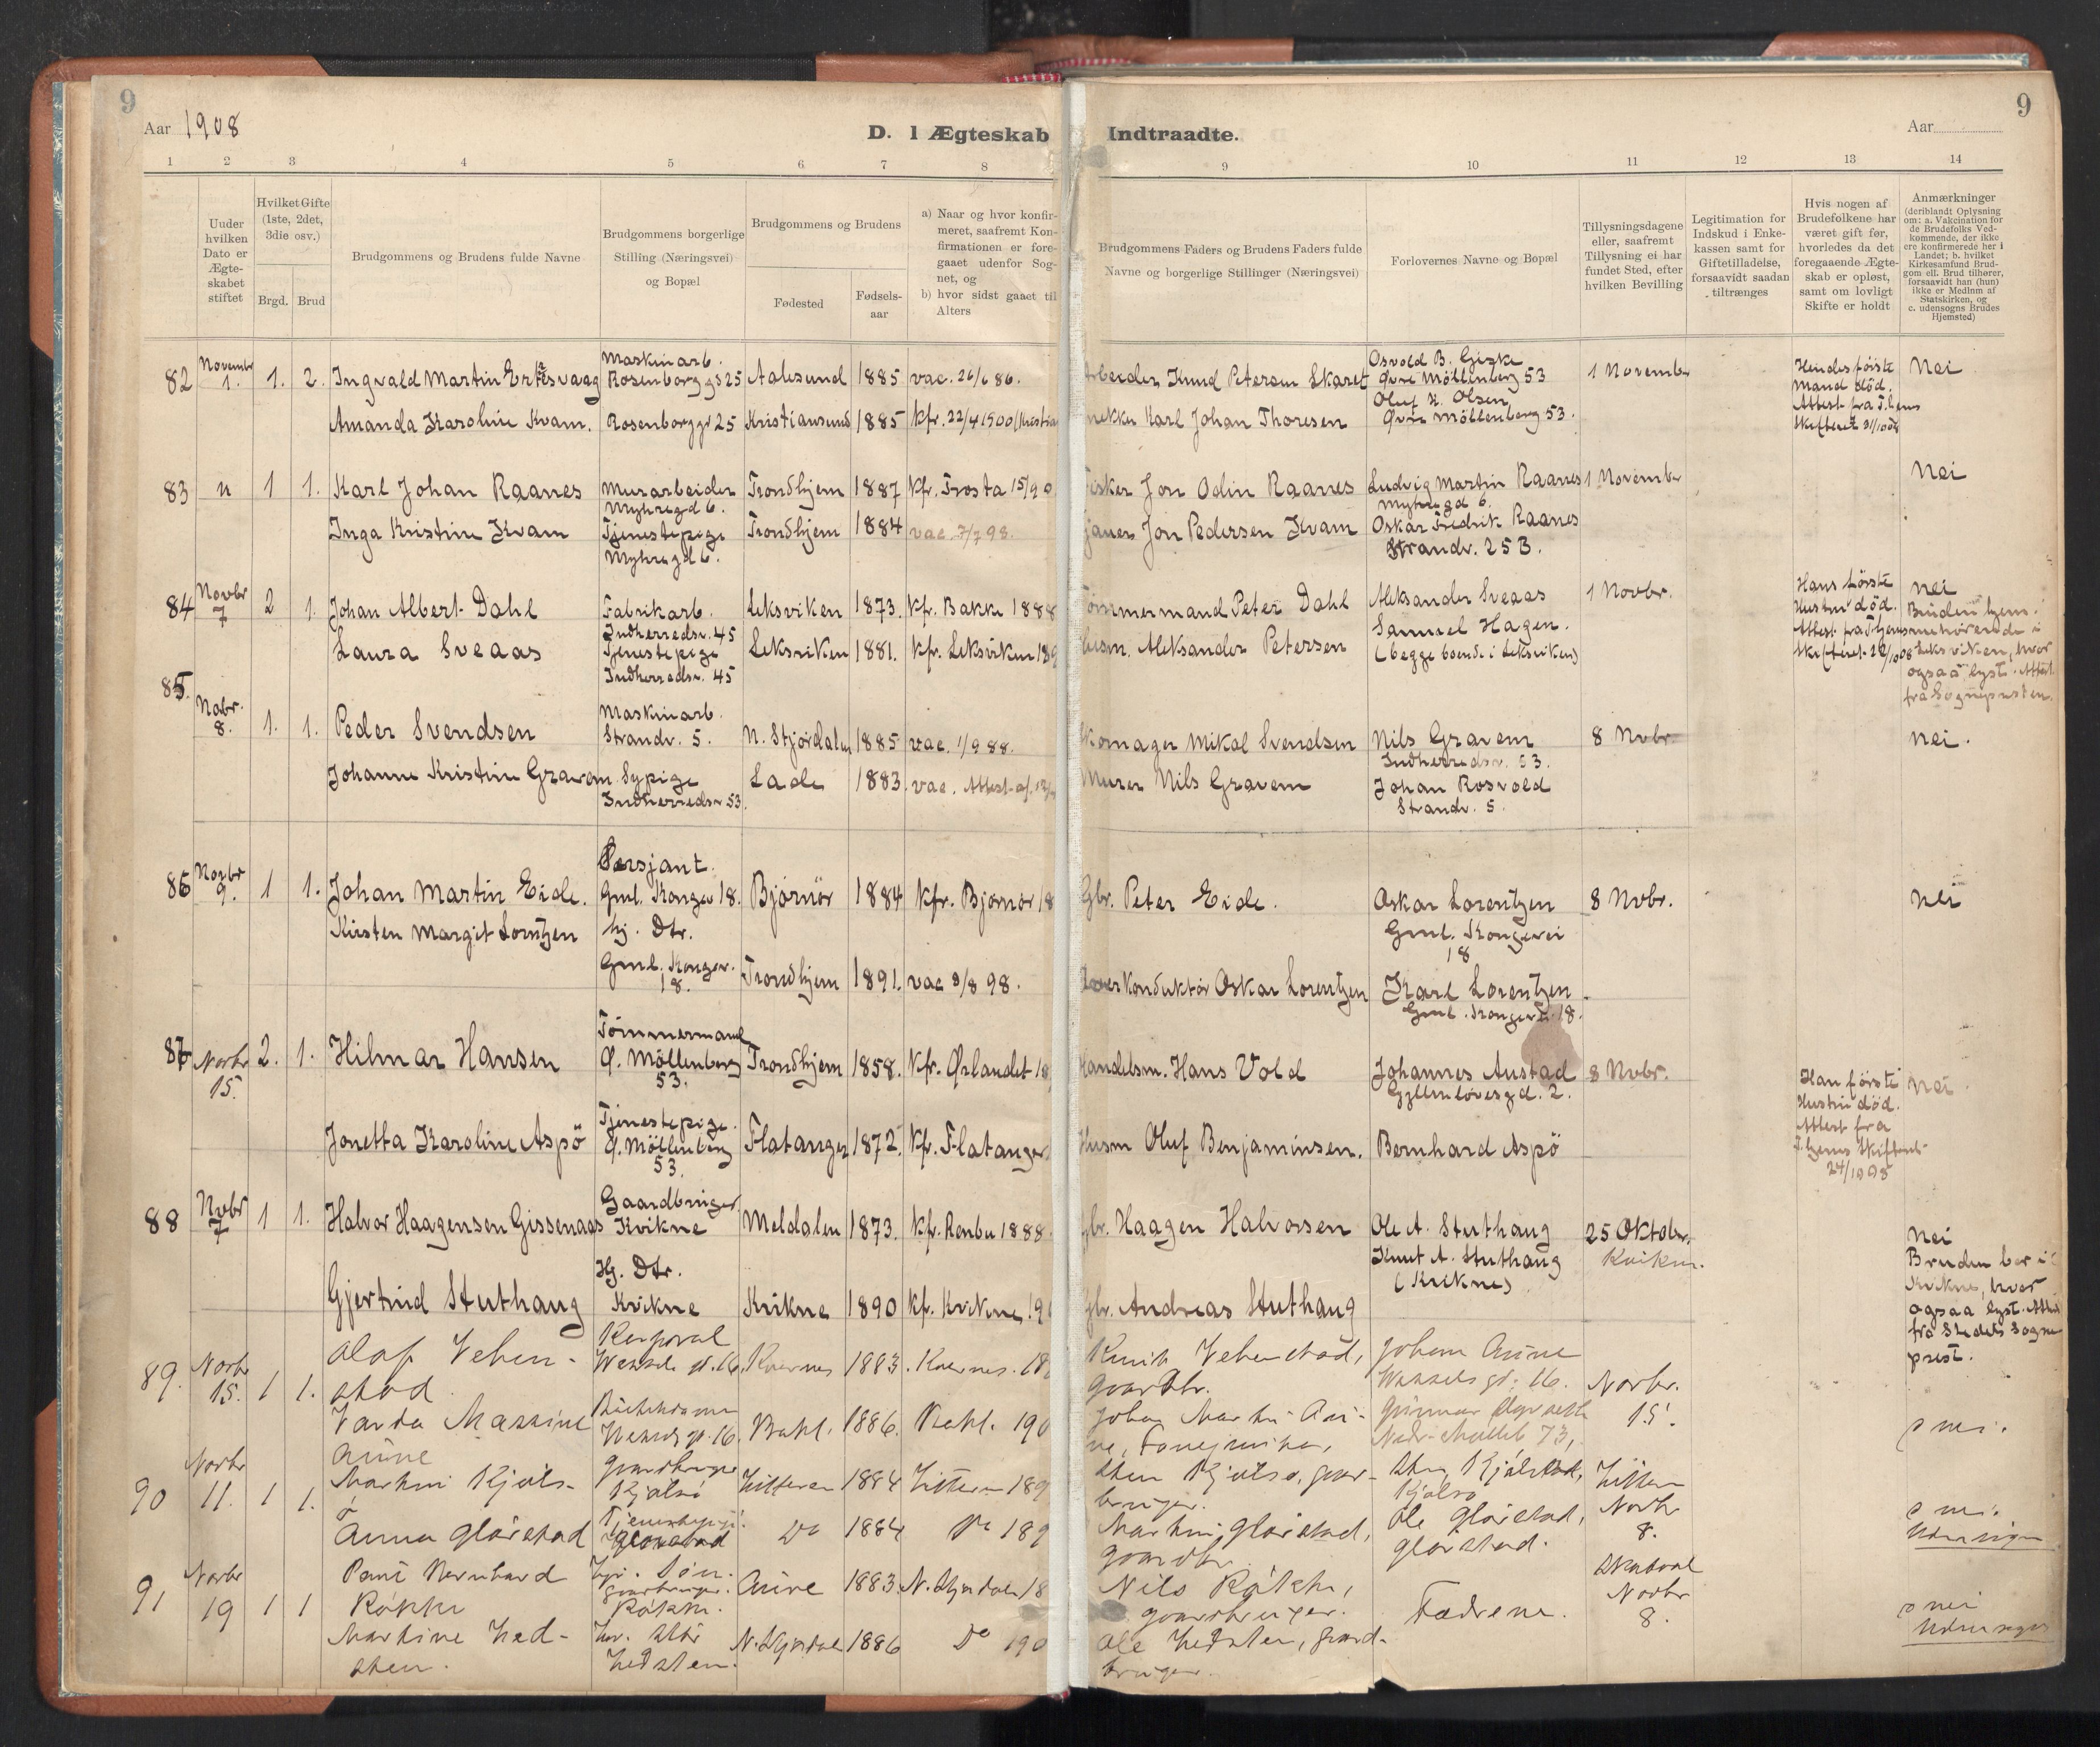 9
Aar 1908
D. I Ægteskab
Indtraadte.
Aar
9
1 2 3 4 5 6 7 8
9 10 11 12 13 14
Uuder hvilken Dato er Ægteskabet stiftet
Hvilket Gifte (1ste, 2det, 3die osv.)
Brgd. Brud
Brudgommens og Brudens fulde Navne
Brudgommens borgerlige Stilling (Næringsvei) og Bopæl
Brudgommens og Brudens
Fødested
Fødsels-aar
a) Naar og hvor konfirmeret, saafremt Konfirmationen er foregaaet udenfor Sognet, og
b) hvor sidst gaaet til Alters
Brudgommens Faders og Brudens Faders fulde Navne og borgerlige Stillinger (Næringsvei)
Forlovernes Navne og Bopæl
Tillysningsdagene eller, saafremt Tillysning ei har fundet Sted, efter hvilken Bevilling
Legitimation for Indskud i Enkekassen samt for Giftetilladelse, forsaavidt saadan tiltrænges
Hvis nogen af Brudefolkene har været gift før, hvorledes da det foregaaende Ægteskab er opløst, samt om lovligt Skifte er holdt
Anmærkninger
(deriblandt Oplysning om: a. Vakcination for de Brudefolks Vedkommende, der ikke ere konfirmerede her i Landet; b. hvilket Kirkesamfund Brudgom ell. Brud tilhører, forsaavidt han (hun) ikke er Medlnm af Statskirken, og c. udensogns Brudes Hjemsted)
82 Novembr 1. 1. 2. Ingvald Martin Ertesvaag Maskinarb. Rosenborggd 25 Aalesund 1885 vac. 26/6 86.
Arbeider Knud Peterson Skaret Osvold B. Giske Øvre Möllenberg 53 1 November Hendes förste Mand död. Attest fra Skifteret 31/10 08 Nei
Amanda Karoline Kvam. Rosenborggd 25 Kristiansund 1885 kfr. 22/4 1900
Karl Johan Thoresen Oluf H. Olsen Øvre Möllenberg 53.
83 " 1 1. Karl Johan Raanes Murarbeider Myhregd 6. Trondhjem 1887 kfr. Frosta
Fisker Jon Odin Raanes Ludvig Martin Raanes Myhregd 6. 1 November Nei
Inga Kristine Kvam Tjenestepige Myhregd 6. Trondhjem 1884 vac. 7/7 98.
Jon Pedersen Kvam Oskar Fredrik Raanes Strandv. 25 B.
84 Novbr 7 2 1. Johan Albert Dahl Fabrikarb. Indherredsv. 45 Leksviken 1873. kfr. Bakke 1888
Tömmermand Peter Dahl Aleksander Sveaas 1 Novbr. Hans förste Hustru död. nei
Laura Sveaas Tjenestepige Indherredsv. 45 Leksviken 1881. kfr. Leksviken
Husm. Aleksander Petersen Samuel Hagen. (begge boende i Leksviken)
Bruden hjemmehörende i Leksviken, hvor ogsaa lyst. Attest fra Sognepresten.
85. Nobr. 8. 1. 1. Peder Svendsen Maskinarb. Strandv. 5. N. Stjördalen 1885 vac. 1/9 88.
Skomager Mikal Svendsen Nils Gravem Indherredsv. 53. 8 Nvbr. nei.
Johanne Kristine Gravem Sypige Indherredsv 53. Lade 1883. vac. Attest
Murer Nils Gravem Johan Rosvold Strandv. 5.
86 Novbr 9. 1 1. Johan Martin Eide. Sersjant. Gml. Kongev 18. Bjørnör 1884 kfr. Bjørnør
Gbr. Peter Eide. Oskar Lorentzen Gml. Kongevei 18 8 Nvbr. nei
Kirsten Margit Lorntzen hj. Dtr. Gml. Kongev. 18. Trondhjem 1891. vac 8/8 98.
Overkonduktör Oskar Lorentzen Karl Lorentzen Gml. Kongevei 18.
87 Novbr 15. 2. 1. Hilmar Hansen Tömmermand Ø. Möllenberg 53. Trondhjem 1858. kfr. Ørlandet
Handelsm. Hans Vold Johannes Austad Gyllenlövesgd. 2. 8 Nvbr. Han förste Hustru död. Attest fra Skifteret 24/10 08 nei.
Jonetta Karoline Aspö Tjenestepige. Ø. Möllenberg 53. Flatanger 1872. kfr. Flatanger
Husm Oluf Benjaminsen. Bernhard Aspö
88 Nvbr 7 1 1. Halvor Haagensen Gissenaas Gaardbruger. Kvikne Meldalen 1873. kfr. Renbu 1888.
Gbr. Haagen Halvorsen Ole A. Stuthaug Knut A. Stuthaug (Kvikne) 25 Oktobr. Kvikne. Nei
Gjertrud Stuthaug Hj. Dtr. Kvikne Kvikne 1890 kf. Kvikne
Gbr. Andreas Stuthaug Bruden bor i Kvikne, hvor ogsaa lyst. Attest fra Stedets Sogneprest.
89. Novbr 15. 1 1. Olaf Vebenstad. Korporal Wessels gt. 16. Kvernes 1883. Kvernes.
Knut Vebenstad, Gaardbr. Johan Aune Wessels gt. 16. Novbr. 15. nei.
Varda Massine Aune Wessels gt. 16. Bakl. 1886. Bakl.
Johan Martin Aune, Gunnar Nedr. Möllebg 73,
90 Novbr 11. 1 1. Martin Kjölsö Gaardbruger Kjölsö Hitteren 1884 Hitteren
Sten Kjölsö, gaardbruger. Hitteren Novbr 8. nei.
Anna Glörstad Tjenestepige Do 1884 Do
Martin Glörstad, gaardbr. Ole Glörstad, Glörstad.
91 Novbr 19 1 1 Bernhard Røkke gaardbruger. Røkke. Aune 1883. N. Stjørdalen
Nils Røkke, gaardbruger. Fædrene. Skatval Novbr 8. nei
Martine Hedsten. Hedsten. N. Stjørdal 1886 Do
Ole Hedsten, gaardbruger.